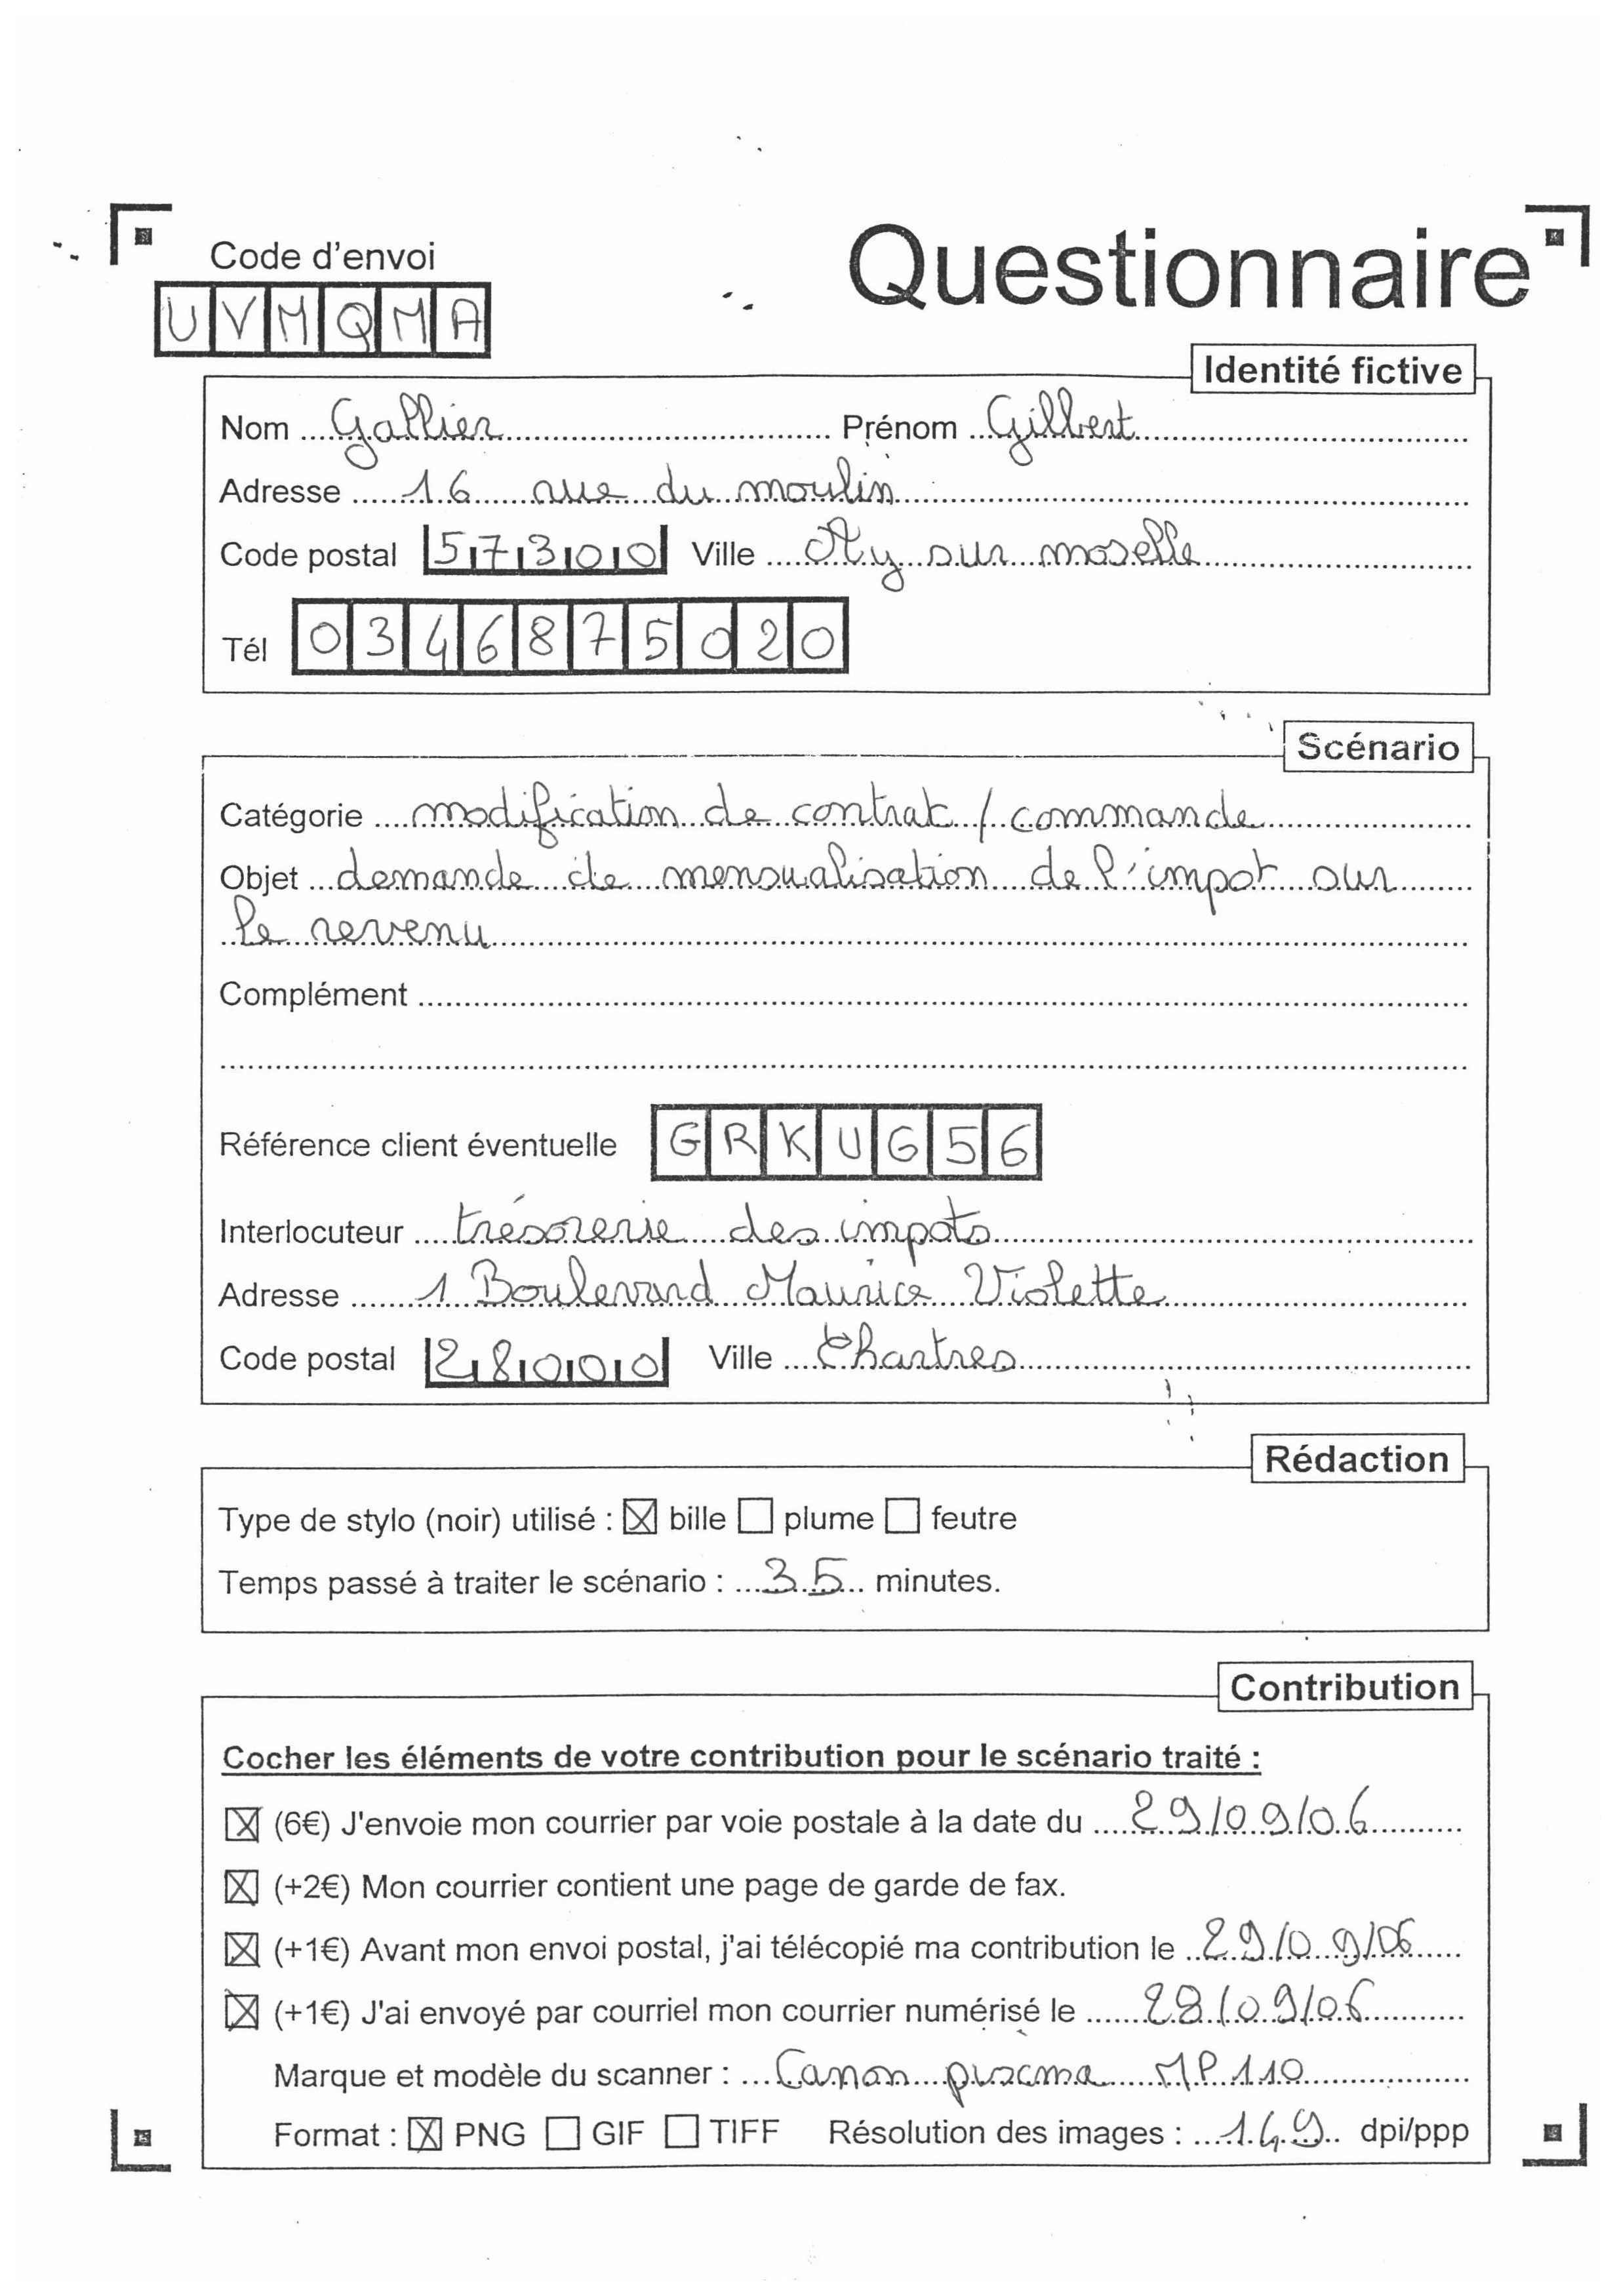 Code d'envoi
Questionnaire
UVMQMA
Identité fictive
Nom Gallier Prénom Gilbert
Adresse 16 rue du moulin
Code postal 57300 Ville Ay sur moselle
Tél 0346875020
Scénario
Catégorie modification de contrat / commande
Objet demande de mensualisation de l'impot sur
le revenu
Complément
Référence client éventuelle GRKUG56
Interlocuteur trésorerie des impots
Adresse 1 Boulevard Maurice Violette
Code postal 28000 Ville Chartres
Rédaction
Type de stylo (noir) utilisé : ☒ bille ☐ plume ☐ feutre
Temps passé à traiter le scénario : 35 minutes.
Contribution
Cocher les éléments de votre contribution pour le scénario traité :
☒ (6€) J'envoie mon courrier par voie postale à la date du 29/09/06
☒ (+2€) Mon courrier contient une page de garde de fax.
☒ (+1€) Avant mon envoi postal, j'ai télécopié ma contribution le 29/09/06
☒ (+1€) J'ai envoyé par courriel mon courrier numérisé le 28/09/06
Marque et modèle du scanner : Canon pixma MP110
Format : ☒ PNG ☐ GIF ☐ TIFF Résolution des images : 149 dpi/ppp